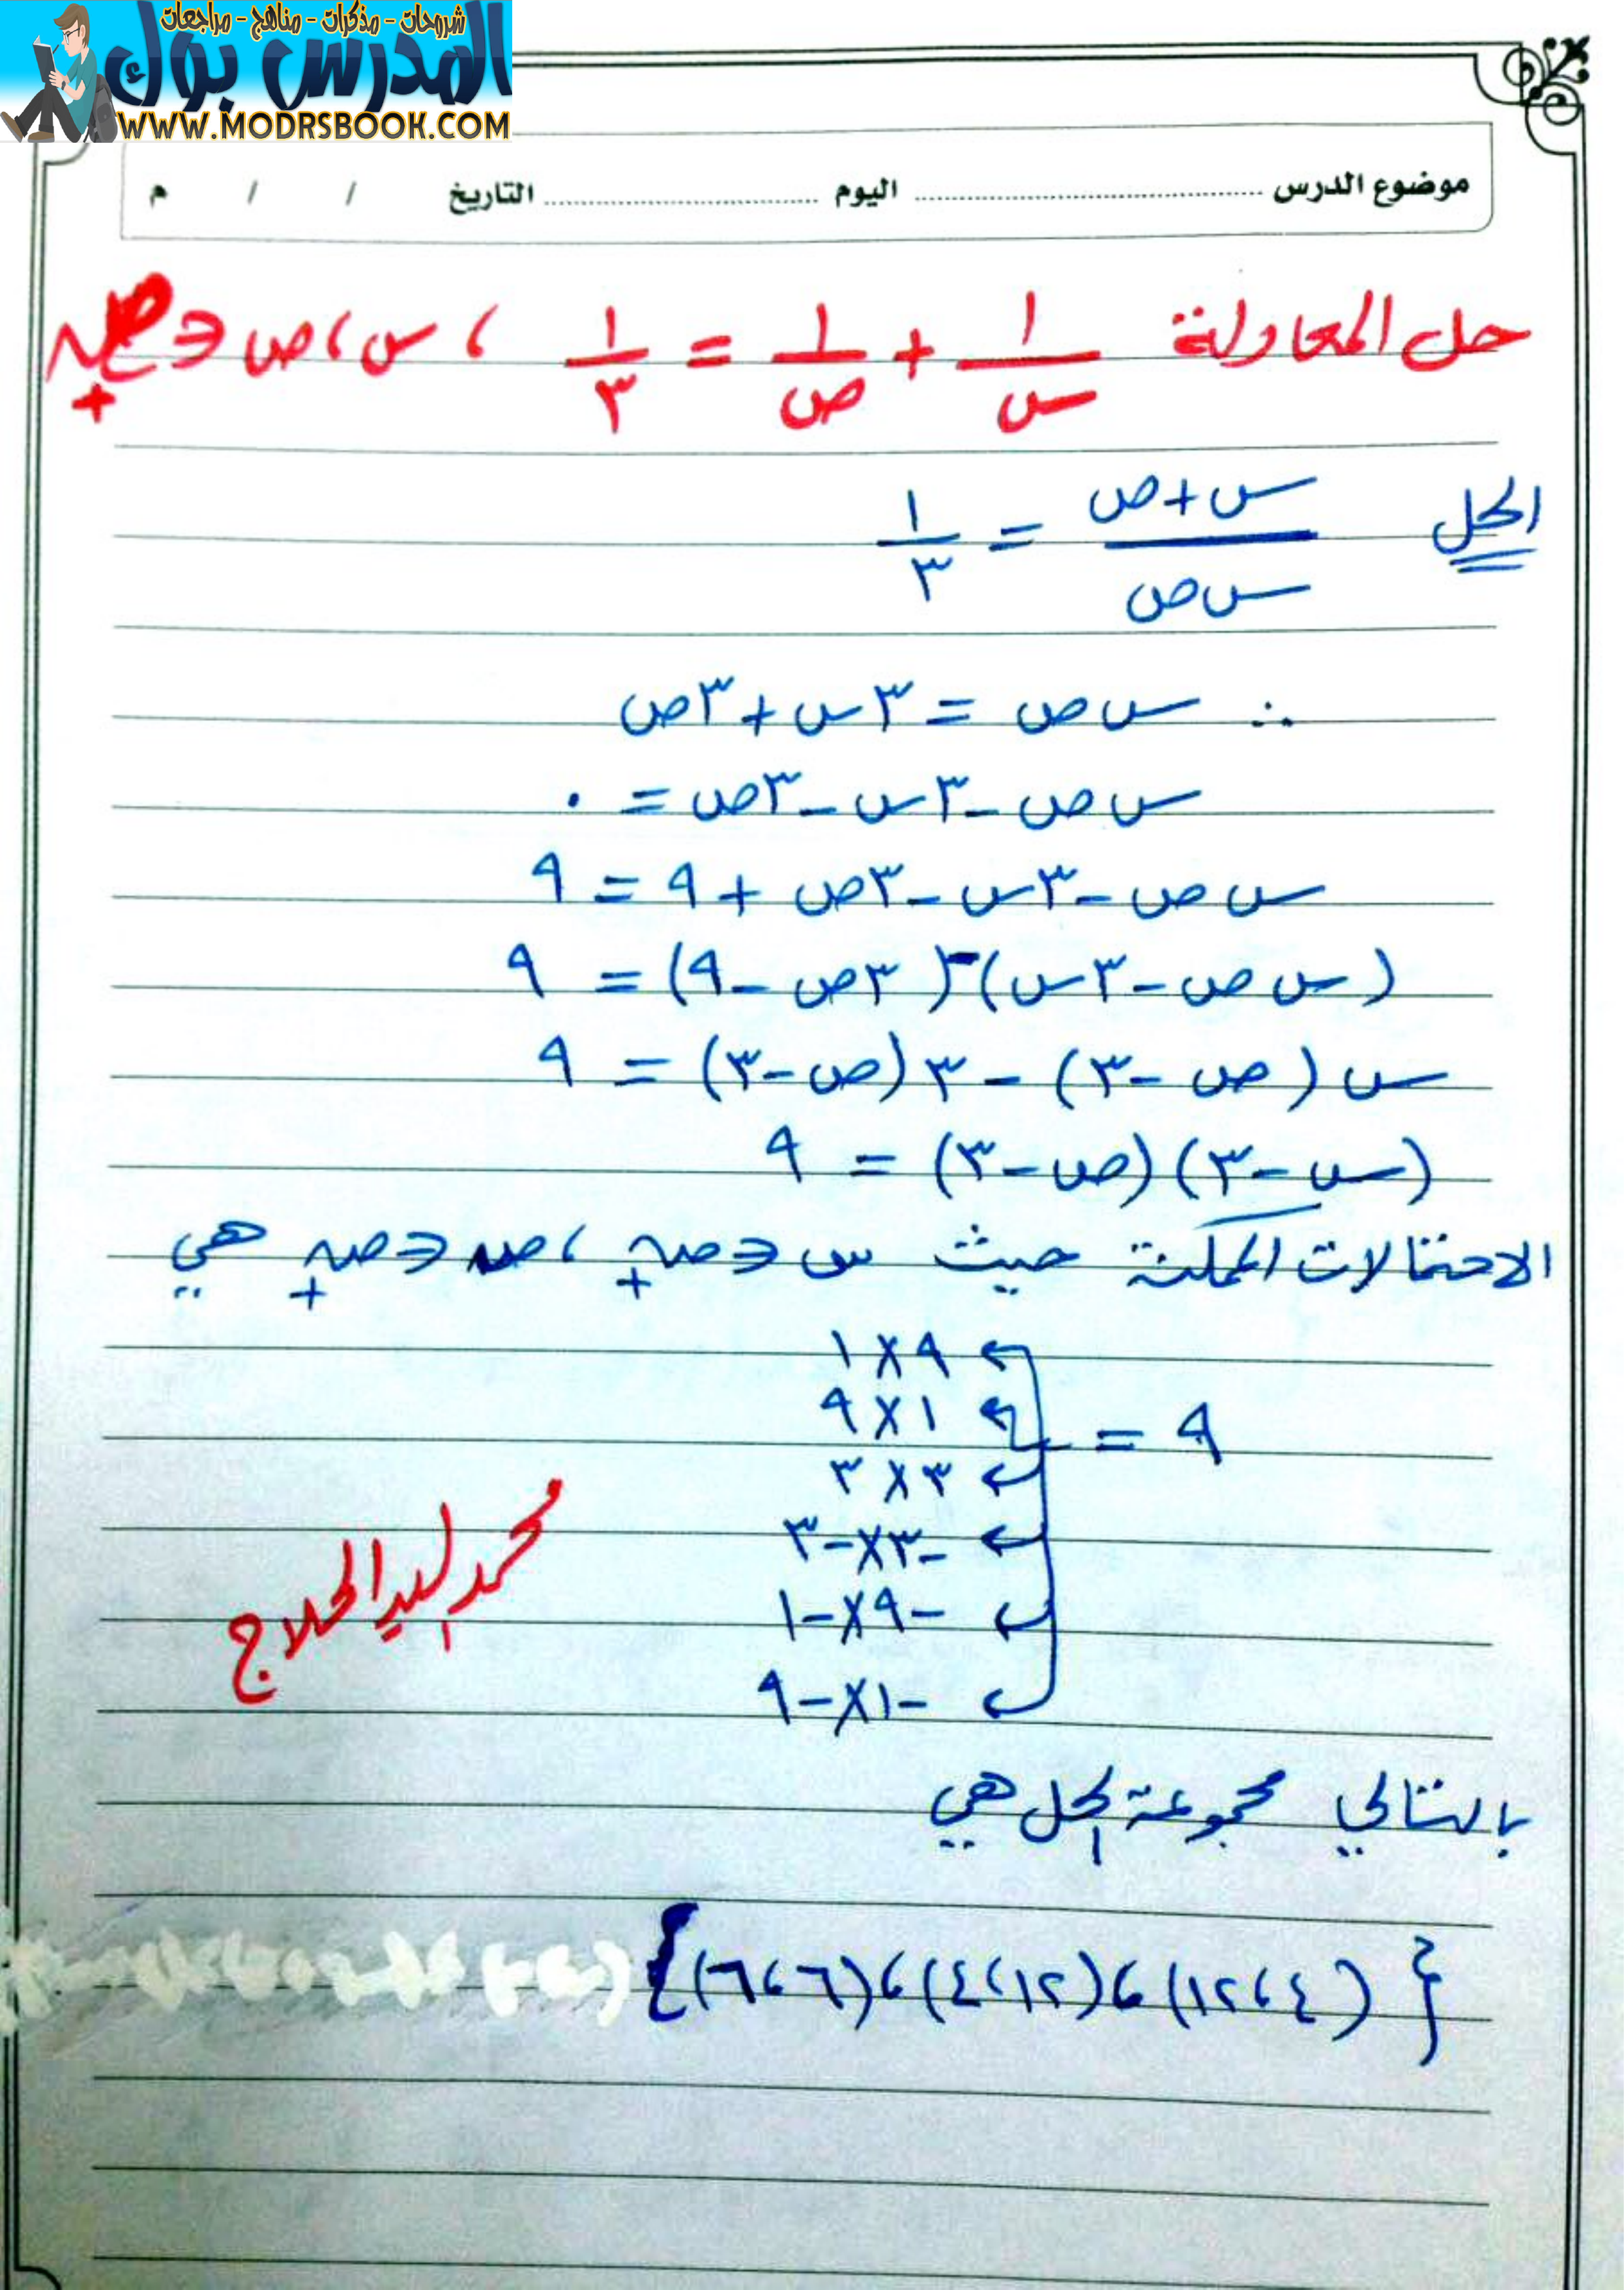 شروحات - مذكرات - مناهج - مراجعات
المدرس بوك
WWW.MODRSBOOK.COM
موضوع الدرس ........ اليوم ........ التاريخ / / م
حل المعادلة ١/س + ١/ص = ١/٣ ، س، ص ∈ ص+
الحل (س + ص)/(س ص) = ١/٣
∴ س ص = ٣س + ٣ص
س ص - ٣س - ٣ص = ٠
س ص - ٣س - ٣ص + ٩ = ٩
(س ص - ٣س) - (٣ص - ٩) = ٩
س (ص - ٣) - ٣ (ص - ٣) = ٩
(س - ٣) (ص - ٣) = ٩
الاحتمالات الممكنة حيث س ∈ ص+ ، ص ∈ ص+ هي
٩ × ١
١ × ٩
٩ =
٣ × ٣
-٣ × -٣
-٩ × -١
-١ × -٩
محمد السيد الحلاج
بالتالي مجموعة الحل هي
{(٤، ١٢)، (١٢، ٤)، (٦، ٦)}